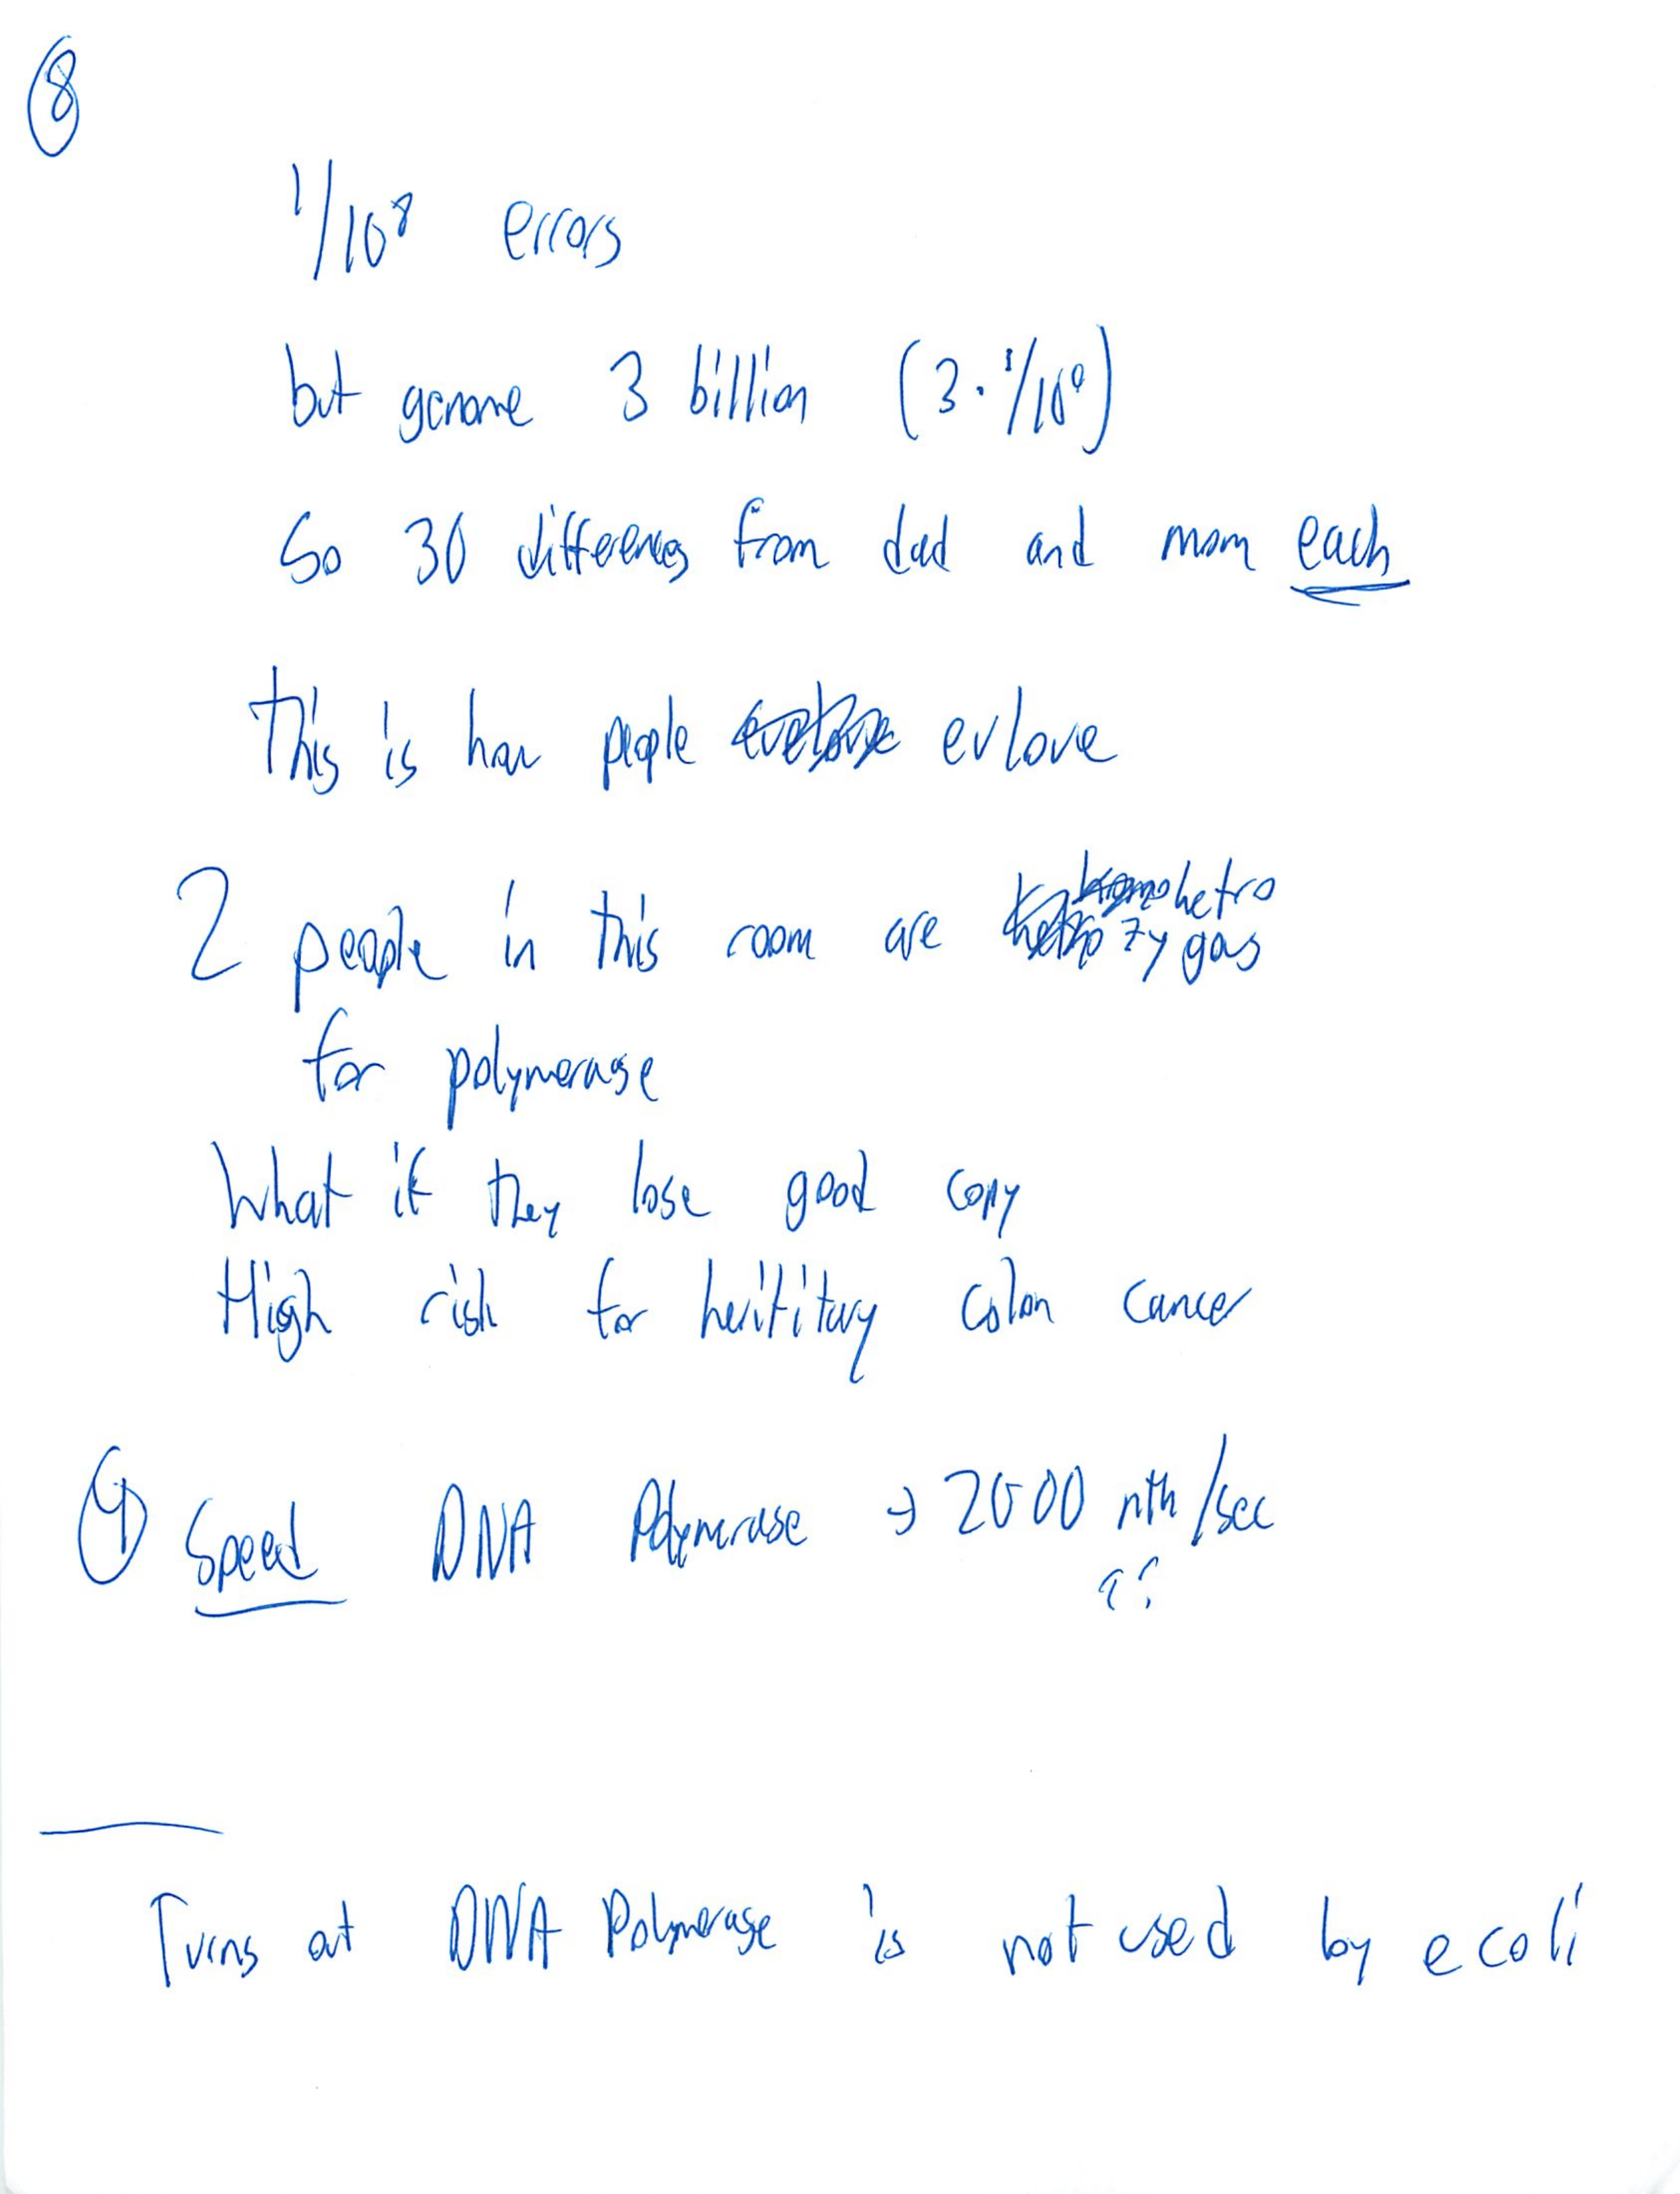 8
1/10⁸ errors
but genome 3 billion (3·1/10⁹)
So 30 differences from dad and mom each
This is how people evlove
2 people in this room are hetro
zygous
for polymerase
What if they lose good copy
High risk for herititary colon cancer
4 Speed DNA Polymerase → 2000 nth/sec
??
Turns out DNA Polymerase is not used by ecoli